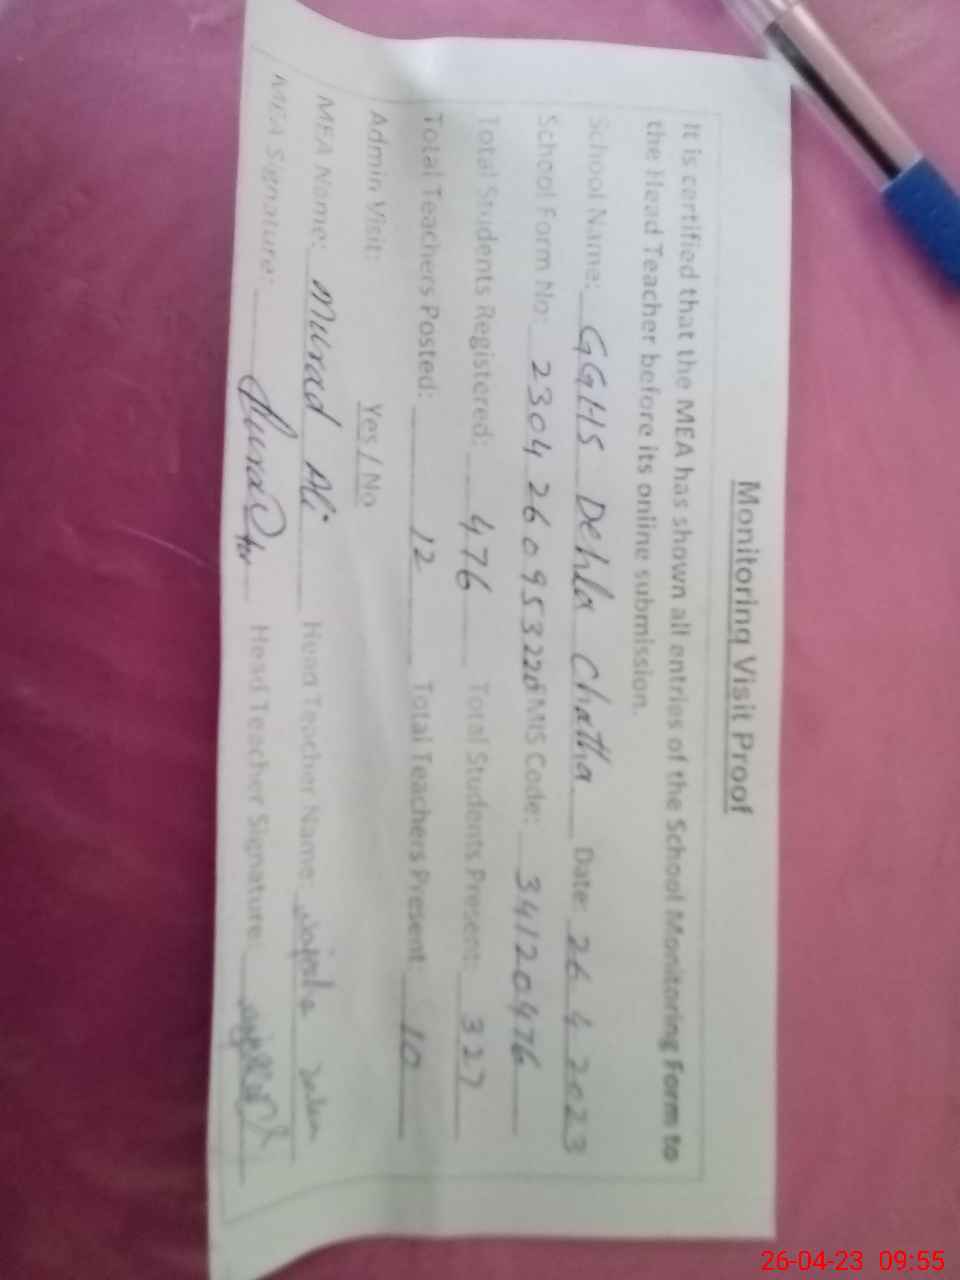 Monitoring Visit Proof
It is certified that the MEA has shown all entries of the School Monitoring Form to
the Head Teacher before its online submission.
School Name: GGHS Dehla Chatha Date: 26 4 2023
School Form No: 2304260953220 EMIS Code: 34120476
Total Students Registered: 476 Total Students Present: 327
Total Teachers Posted: 12 Total Teachers Present: 10
Admin Visit: Yes / No
MEA Name: Murad Ali Head Teacher Name:
MEA Signature: Head Teacher Signature:
26-04-23 09:55